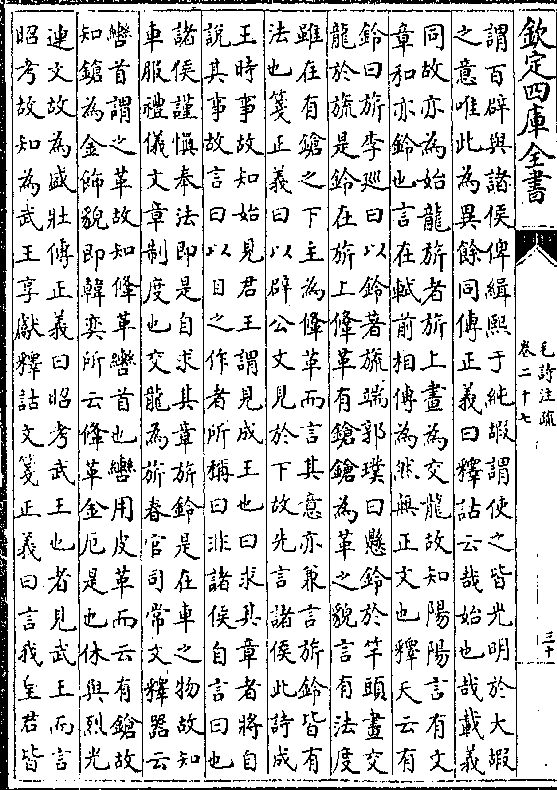 欽定四庫全書
毛詩注疏
卷二十七
三十
謂百辟與諸侯俾緝熙于純嘏謂使之皆光明於大嘏
之意唯此為異餘同傳正義曰釋詁云哉始也哉載義
同故亦為始龍旂者旂上畫為交龍故知陽陽言有文
章和亦鈴也言在軾前相傳為然無正文也釋天云有
鈴曰旂李廵曰以鈴著旒端郭璞曰懸鈴於竿頭畫交
龍於旒是鈴在旂上鞗革有鎗鎗為革之貌言有法度
雖在有鎗之下主為鞗革而言其意亦兼言旂鈴皆有
法也箋正義曰以辟公文見於下故先言諸侯此詩成
王時事故知始見君王謂見成王也曰求其章者將自
說其事故言曰以目之作者所稱曰非諸侯自言曰也
諸侯謹慎奉法即是自求其章旂鈴是在車之物故知
車服禮儀文章制度也交龍為旂春官司常文釋器云
轡首謂之革故知鞗革轡首也轡用皮革而云有鎗故
知鎗為金飾貌即韓奕所云鞗革金厄是也休與烈光
連文故為盛壯傳正義曰昭考武王也者見武王而言
昭考故知為武王享獻釋詁文箋正義曰言我皇君皆